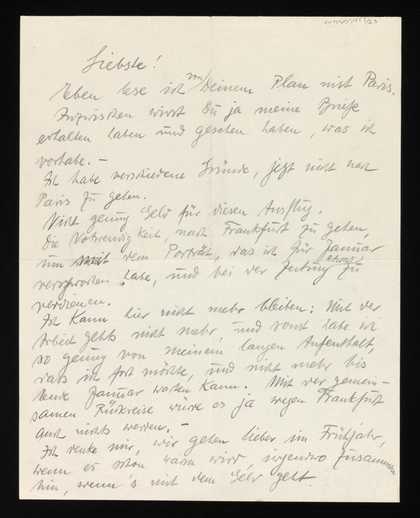 Liebste!
Eben lese ich von Deinem Plan mit Paris.
Inzwischen wirst Du ja meine Briefe
erhalten haben und gesehen haben, was ich
vorhabe. –
Ich habe verschiedene Gründe, jetzt nicht nach
Paris zu gehen.
Nicht genug Geld für diesen Ausflug.
Die Notwendigkeit, nach Frankfurt zu gehen,
um mit dem Porträt, was ich für Januar
versprochen habe, und bei der Zeitung zu
verdienen.
Ich kann hier nicht mehr bleiben: Mit der
Arbeit gehts nicht mehr und sonst habe ich
so genug von meinem langen Aufenthalt,
dass ich fort möchte, und nicht mehr bis
Ende Januar warten kann. Mit der gemein-
samen Rückreise würde es ja wegen Frankfurt
auch nichts werden. –
Ich denke mir, wir gehen lieber im Frühjahr,
wenn es schon warm wird irgendwo zusammen
hin, wenn's mit dem Geld geht.